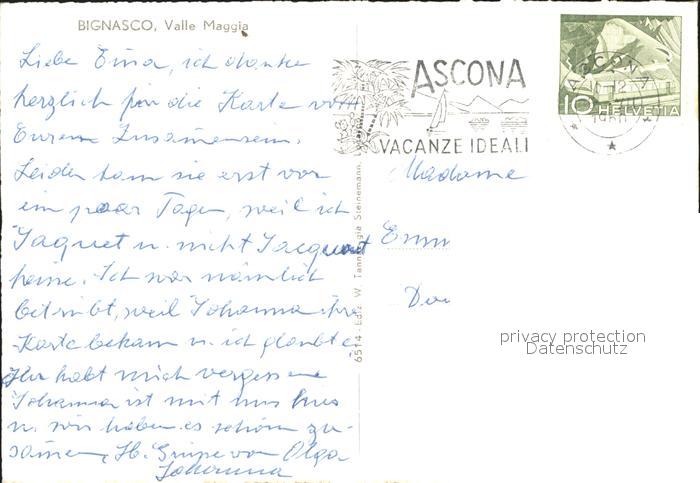 BIGNASCO, Valle Maggia
Liebe Erna, ich danke
herzlich für die Karte vom
Eurem Zusamensein.
Leider kam sie erst vor
ein paar Tagen, weil ich
Jaquet u. nicht Jacquot
heisse. Ich war nämlich
betrübt, weil Johanna ihre
Karte bekam u. ich glaubte
Ihr habt mich vergessen
Johanna ist mit uns hier
u. wir haben es schön zu-
samen, H. Grüsse von Olga
Johanna
6514 - Ediz. W. Tannaz Steinemann,
ASCONA
VACANZE IDEALI
ASCONA
12
10 HELVETIA
Madame
privacy protection
Datenschutz